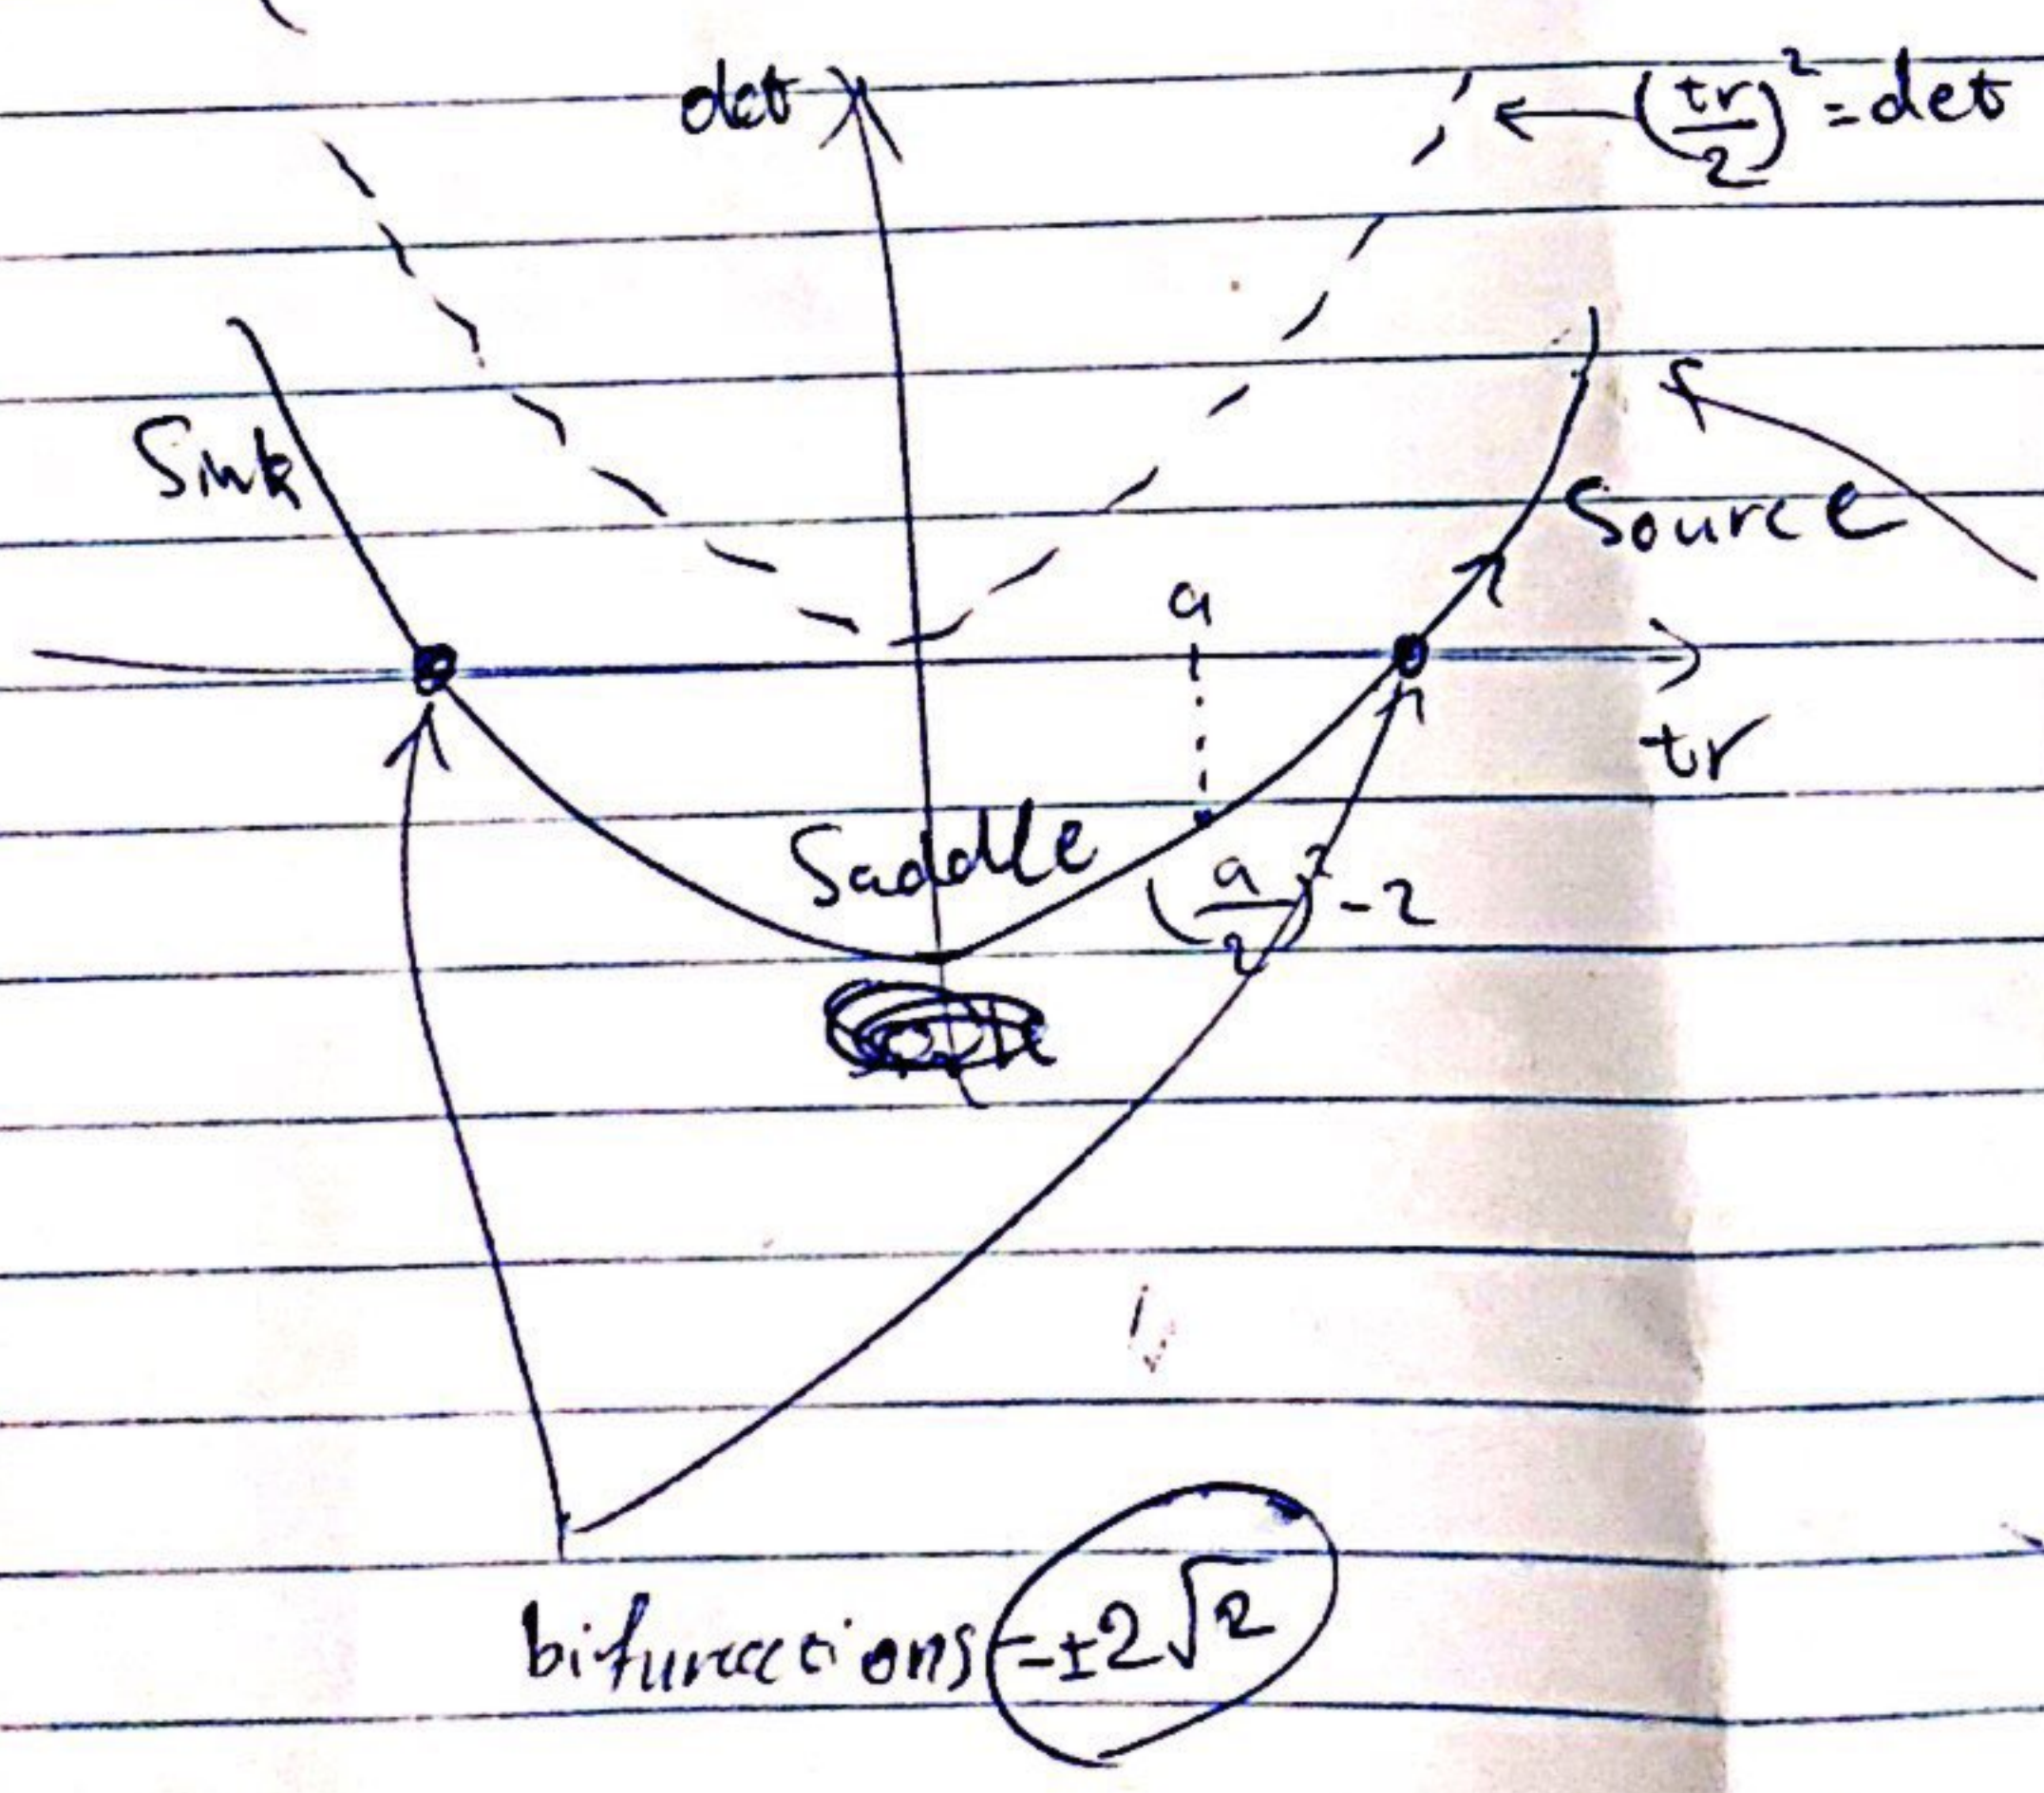 det
(tr/2)² = det
Sink
Source
a
tr
Saddle
(a/2)² - 2
bifurcations = ±2√2